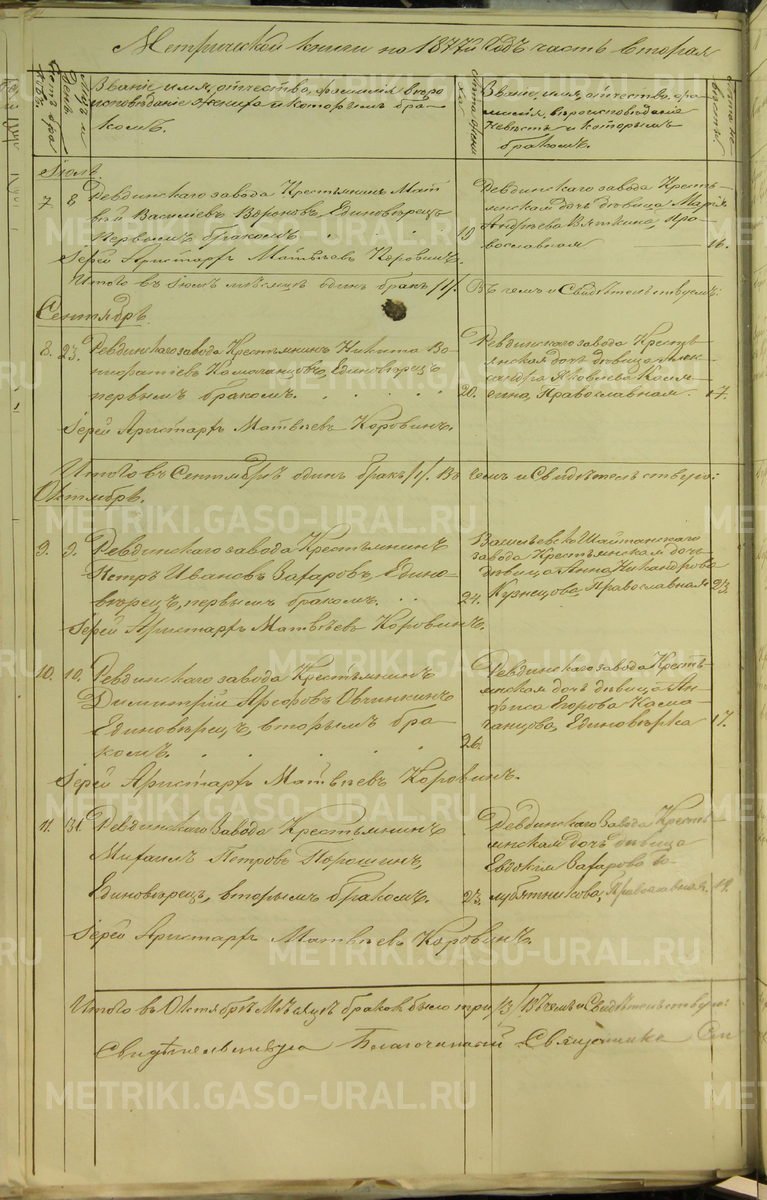 Метрической книги на 1877й Годъ часть вторая
Званіе, имя, отчество, фамилія, вѣро
исповѣданіе жениха и которымъ бра-
комъ.
Лѣта жениха
Званіе, имя, отчество, фа-
милія, вѣроисповѣданіе
невѣсты и которымъ
бракомъ.
Лѣта невѣсты
Іюль.
7 8 Ревдинскаго завода Крестьянинъ Мат
вѣй Васильевъ Вороновъ, Единовѣрецъ
первымъ бракомъ. 19
Ревдинскаго завода Кресть-
янская дочь дѣвица Марія
Андреева Вяткина, пра-
вославная 16.
Іерей Аристархъ Матвѣевъ Коровинъ.
Итого въ Іюлѣ мѣсяцѣ одинъ бракъ /1/. Въ чемъ и Свидѣтельствуемъ:
Сентябрь.
8. 23. Ревдинскаго завода Крестьянинъ Никита
Камаганцовъ, Единовѣрецъ
первымъ бракомъ. 20.
Ревдинскаго завода Кресть-
янская дочь дѣвица Алек-
сандра Яковлева
Православная. 17.
Іерей Аристархъ Матвѣевъ Коровинъ.
Итого въ Сентябрѣ одинъ бракъ /1/. Во семъ и Свидѣтельствую:
Октябрь.
9. 9. Ревдинскаго завода Крестьянинъ
Петръ Ивановъ Захаровъ, Едино-
вѣрецъ, первымъ бракомъ. 24.
Васильевско Шайтанскаго
завода Крестьянская дочь
дѣвица Анна Никандрова
Кузнецова, Православная 23.
Іерей Аристархъ Матвѣевъ Коровинъ.
10. 10. Ревдинскаго завода Крестьянинъ
Димитрій Арефовъ Овчинкинъ
Единовѣрецъ, вторымъ бра-
комъ. 26.
Ревдинскаго завода Кресть-
янская дочь дѣвица Ан-
фиса Егорова Кама-
ганцова, Единовѣрка 17.
Іерей Аристархъ Матвѣевъ Коровинъ.
11. 31. Ревдинскаго Завода Крестьянинъ
Михаилъ Петровъ Порошинъ,
Единовѣрецъ, вторымъ бракомъ. 23.
Ревдинскаго Завода Кресть-
янская дочь дѣвица
Евдокія Захарова Го-
лубятникова, Православная. 19.
Іерей Аристархъ Матвѣевъ Коровинъ.
Итого въ Октябрѣ Мѣсяцѣ браковъ было три /3/ Въ чемъ и Свидѣтельствую:
Свидѣтельствовалъ Благочинный Священникъ
METRIKI.GASO-URAL.RU